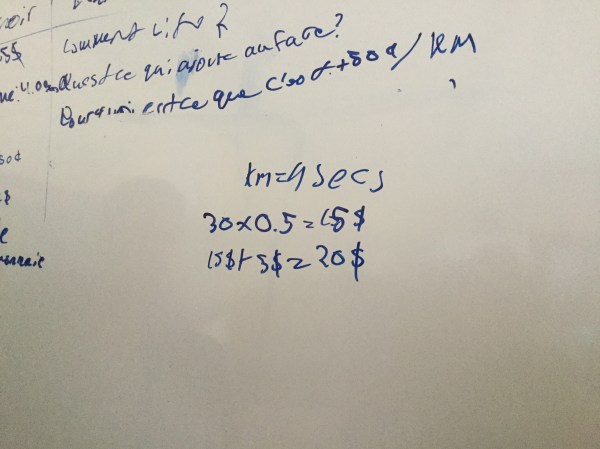 oir
5$ comment
Qu'est ce qui ajoute au fare?
Pourquoi est ce que c'est +50¢/KM
50¢
$
e
nnaie
km=4 secs
30×0.5=15$
15$+5$=20$